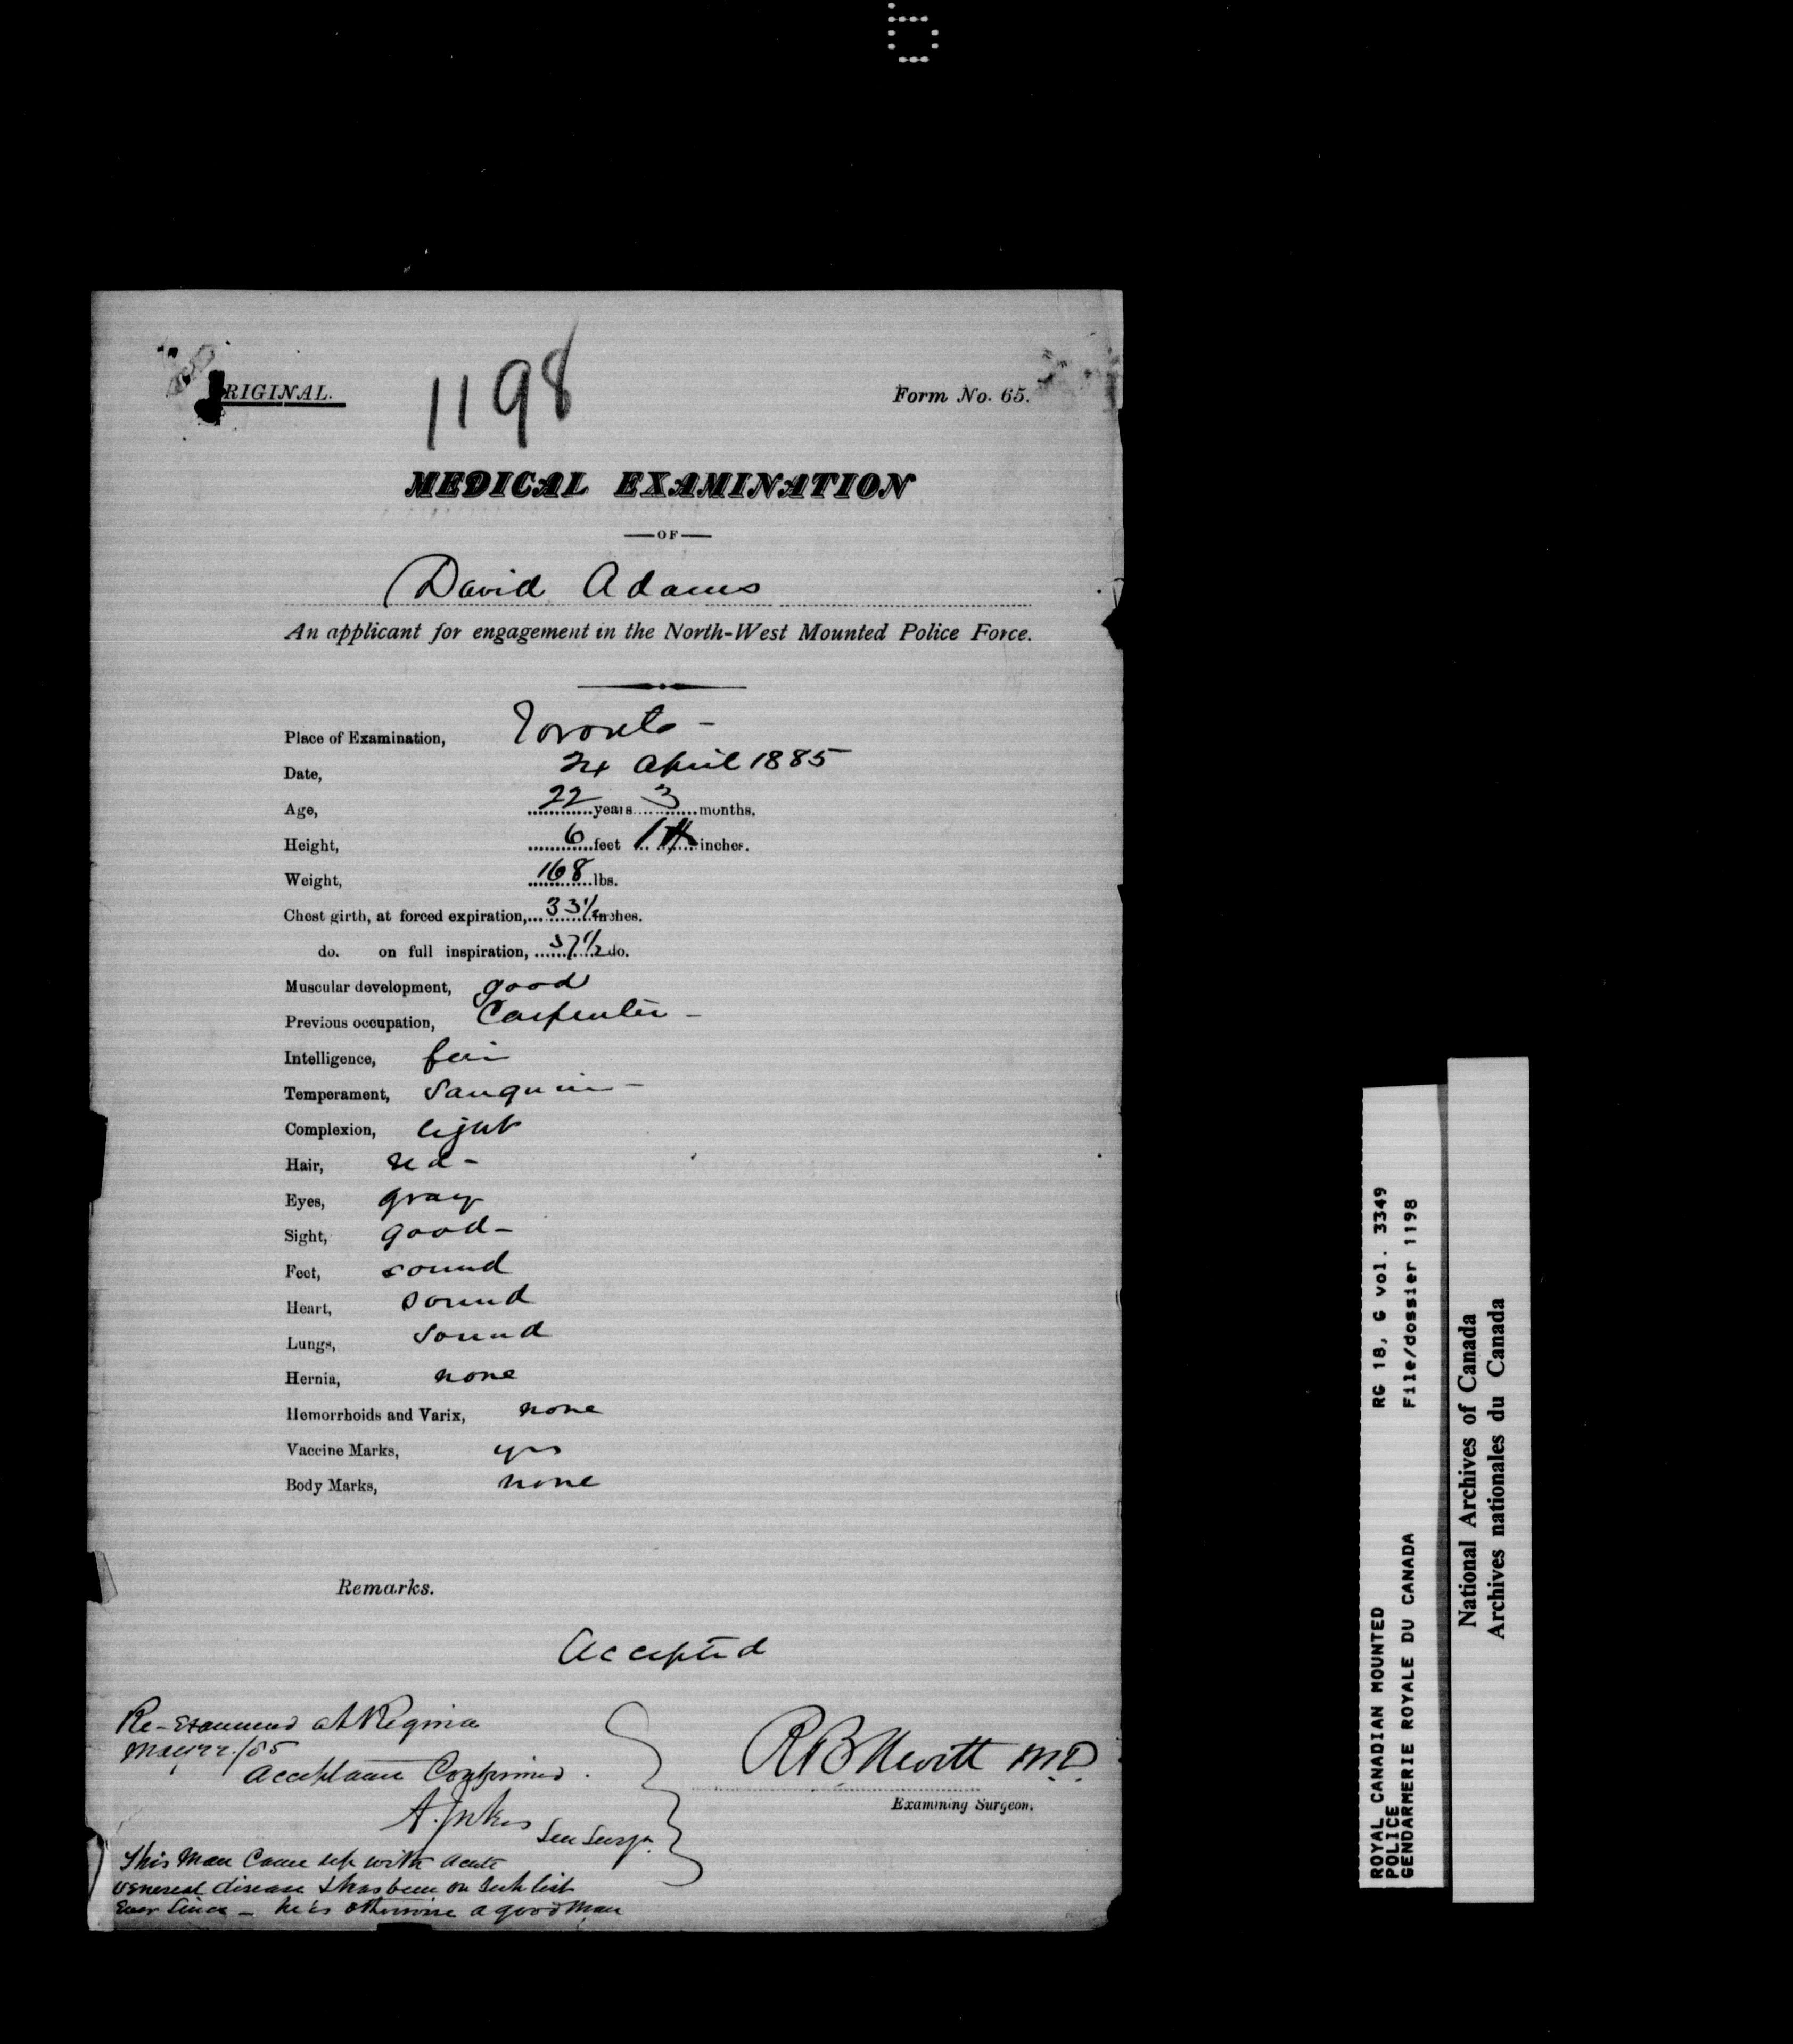 ORIGINAL.
1198
Form No. 65.
MEDICAL EXAMINATION
—OF—
David Adams
An applicant for engagement in the North-West Mounted Police Force.
Place of Examination, Toronto -
Date, 24 April 1885
Age, 22 years 3 months.
Height, 6 feet 1 inches.
Weight, 168 lbs.
Chest girth, at forced expiration, 33 1/2 inches.
do. on full inspiration, 37 1/2 do.
Muscular development, good
Previous occupation, Carpenter -
Intelligence, fair
Temperament, Sanguin -
Complexion, light
Hair, red -
Eyes, gray
Sight, good -
Feet, sound
Heart, sound
Lungs, sound
Hernia, none
Hemorrhoids and Varix, none
Vaccine Marks, yes
Body Marks, none
Remarks.
Accepted
Re-examined at Regina
May 22/85
Acceptance Confirmed.
A. Jukes
Sen Surgn.
R B Nevitt M.D.
Examining Surgeon.
This Man Came up with acute
venereal disease & has been on Sick list
Ever Since - he is otherwise a good Man
ROYAL CANADIAN MOUNTED POLICE
GENDARMERIE ROYALE DU CANADA
RG 18, G vol. 3349
File/dossier 1198
National Archives of Canada
Archives nationales du Canada